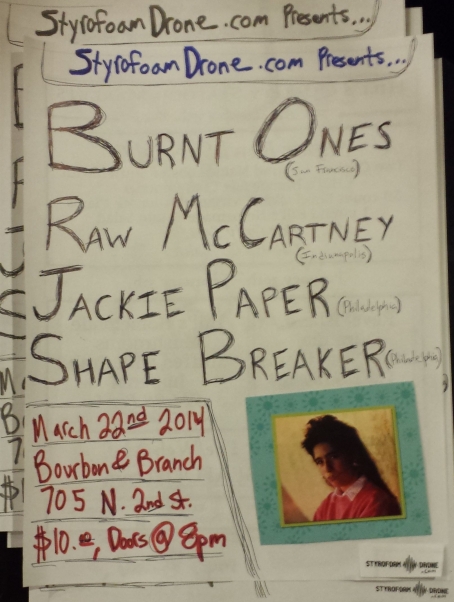 StyrofoamDrone.com Presents...
StyrofoamDrone.com Presents...
Burnt Ones
(San Francisco)
Raw McCartney
(Indianapolis)
Jackie Paper (Philadelphia)
Shape Breaker (Philadelphia)
March 22nd 2014
Bourbon & Branch
705 N. 2nd St.
$10.00, Doors @ 8pm
STYROFOAM DRONE
.com
STYROFOAM DRONE
.com